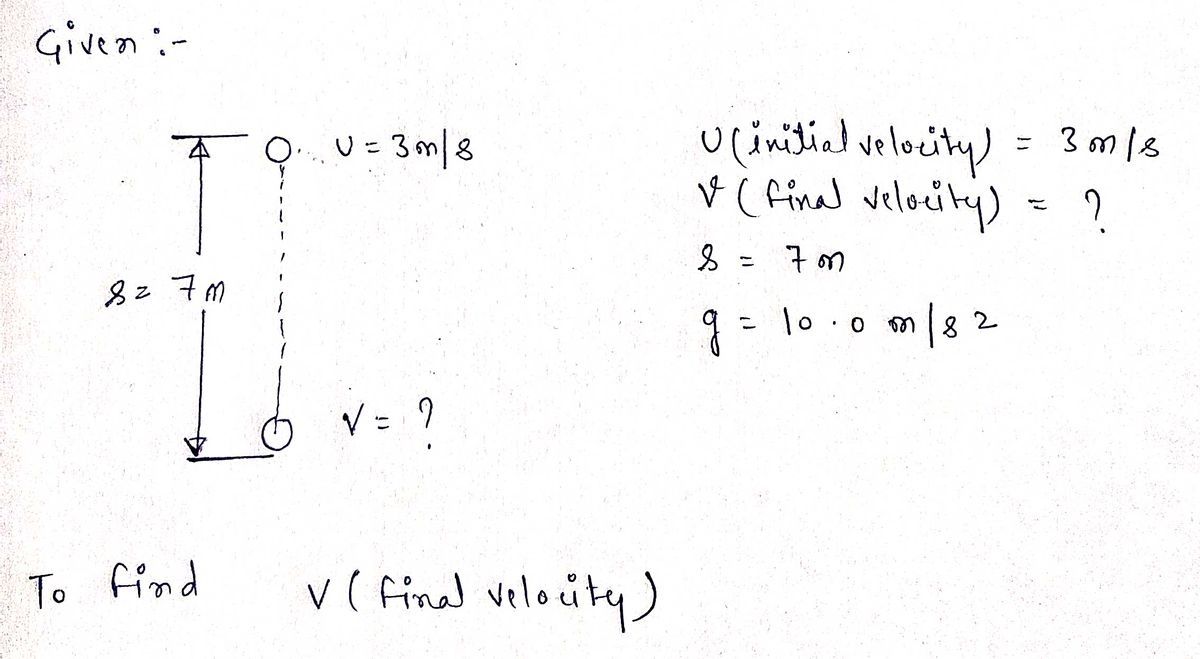 Given :-
U = 3 m/s
S = 7 m
V = ?
U (initial velocity) = 3 m/s
V (final velocity) = ?
S = 7 m
g = 10.0 m/s 2
To find V (final velocity)